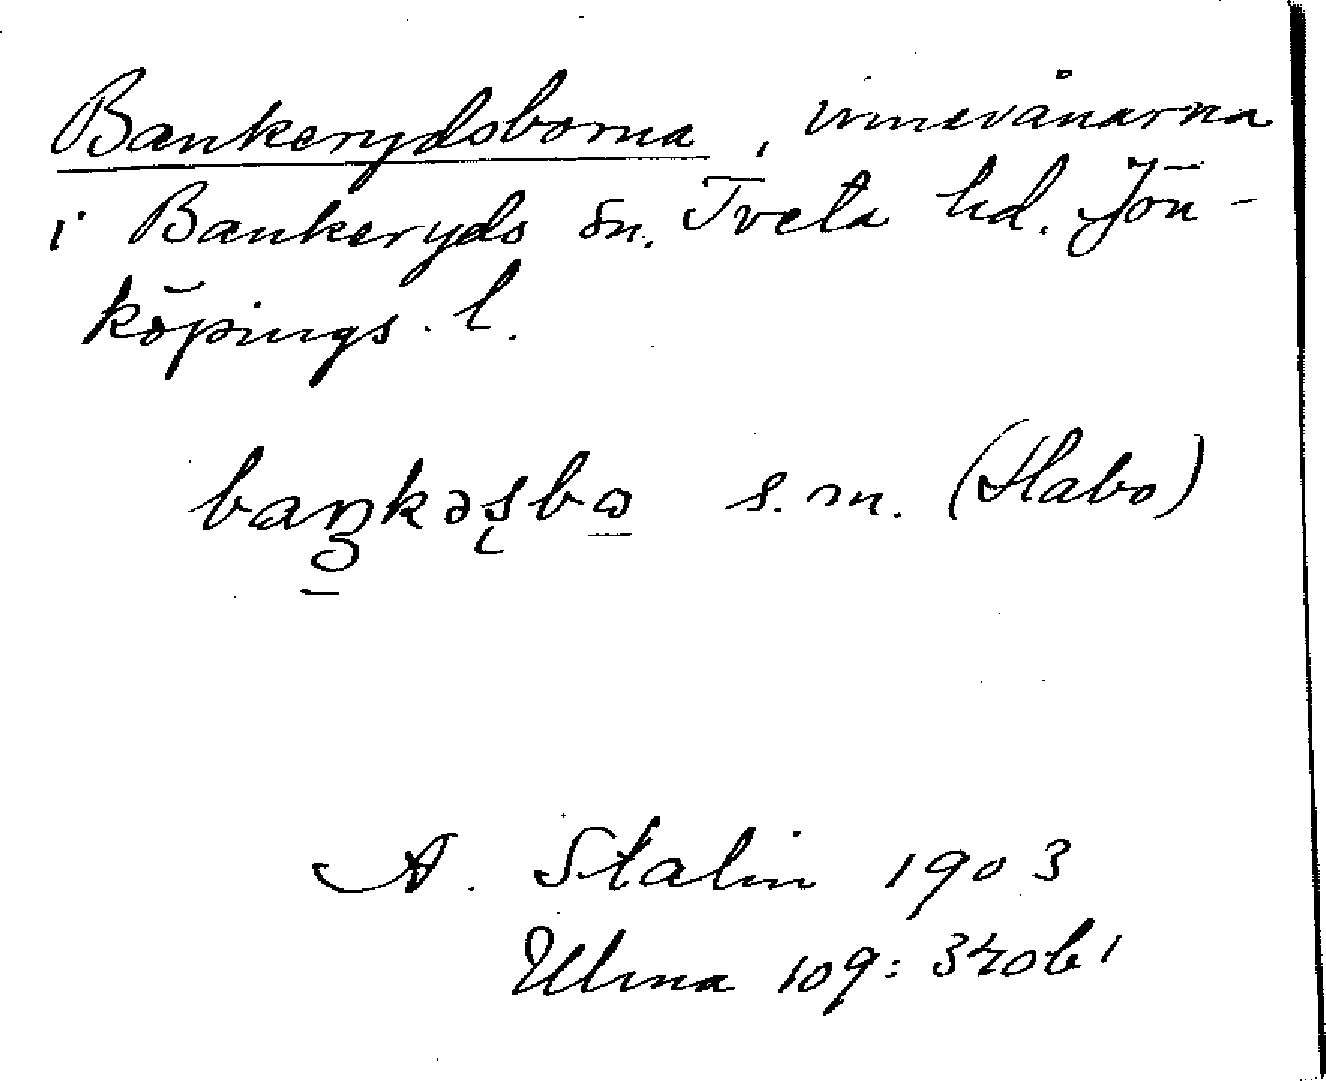 Bankerydsborna, innevånarna
i Bankeryds sn. Tveta hd. Jön-
köpings l.
baŋkəʂbo s.m. (Habo)
A. Stalin 1903
Ulma 109: 340b1